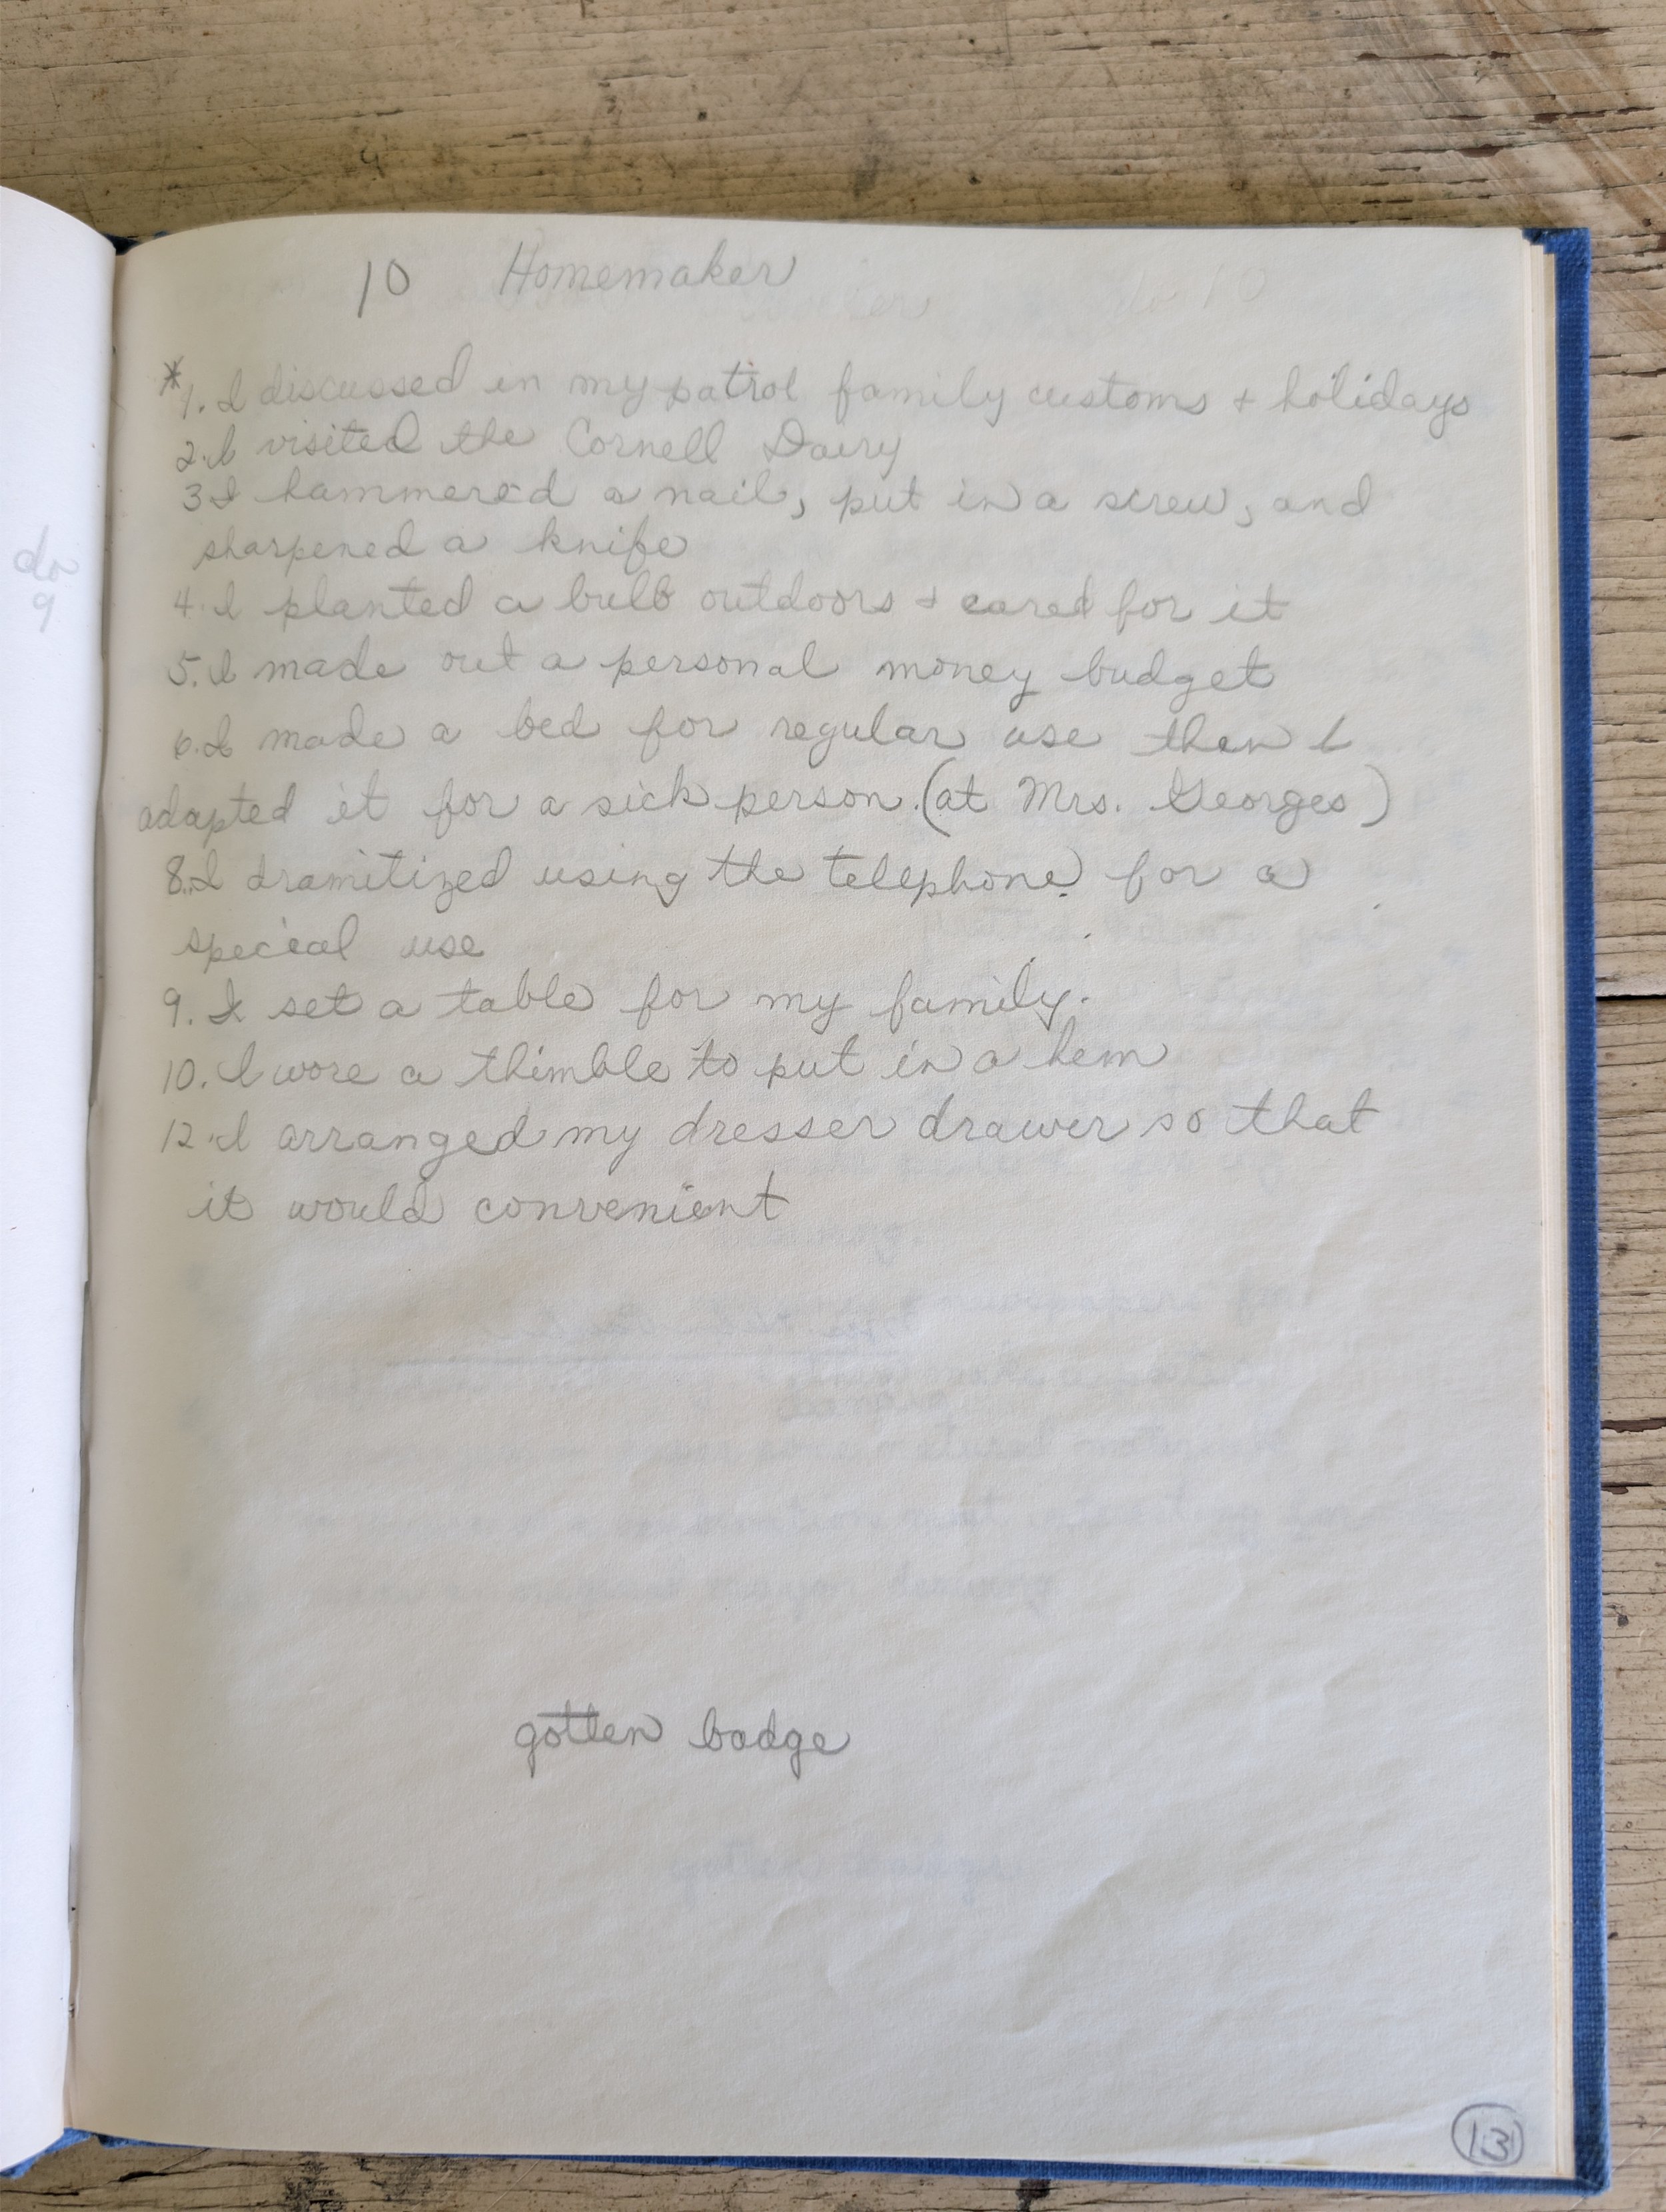 do
9
10 Homemaker
do 10
*1. I discussed in my patrol family customs + holidays
2. I visited the Cornell Dairy
3 I hammered a nail, put in a screw, and
sharpened a knife
4. I planted a bulb outdoors + cared for it
5. I made out a personal money budget
6. I made a bed for regular use then I
adapted it for a sick person. (at Mrs. Georges)
8. I dramitized using the telephone for a
special use
9. I set a table for my family.
10. I wore a thimble to put in a hem
12. I arranged my dresser drawer so that
it would convenient
gotten badge
13